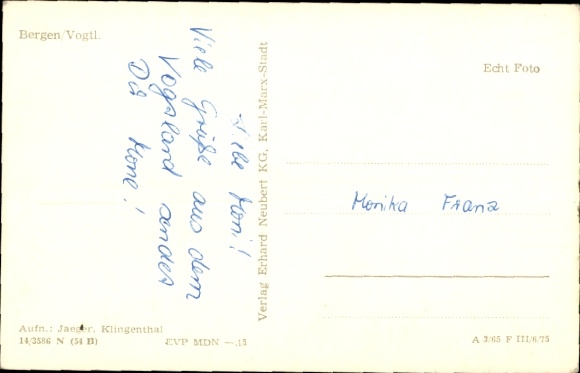 Bergen/Vogtl.
Liebe Moni!
Viele Grüße aus dem
Vogtland sendet
Dir Mone!
Verlag Erhard Neubert KG, Karl-Marx-Stadt
Echt Foto
Monika Franz
Aufn.: Jaeger, Klingenthal
14/3586 N (54 B) EVP MDN —,15
A 3/65 F III/6/75